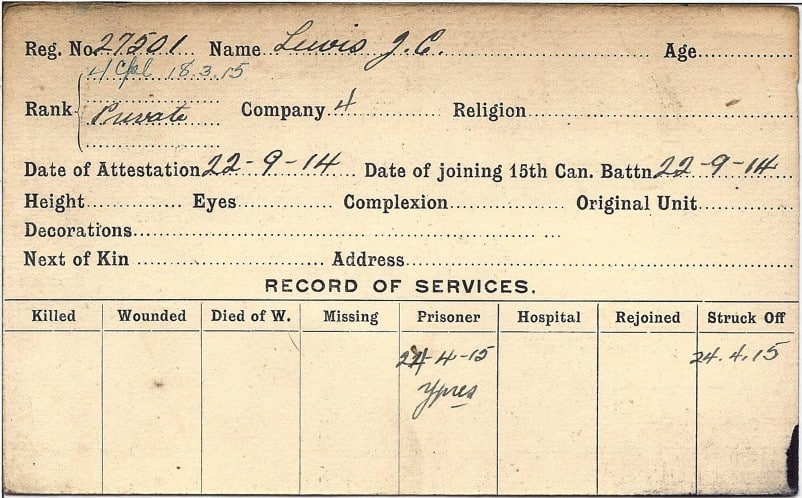 Reg. No. 27501 Name Lewis J. C. Age
L/Cpl 18.3.15
Rank Private Company 4 Religion
Date of Attestation 22-9-14 Date of joining 15th Can. Battn 22-9-14
Height Eyes Complexion Original Unit
Decorations
Next of Kin Address
RECORD OF SERVICES.
Killed Wounded Died of W. Missing Prisoner Hospital Rejoined Struck Off
24-4-15 24.4.15
Ypres